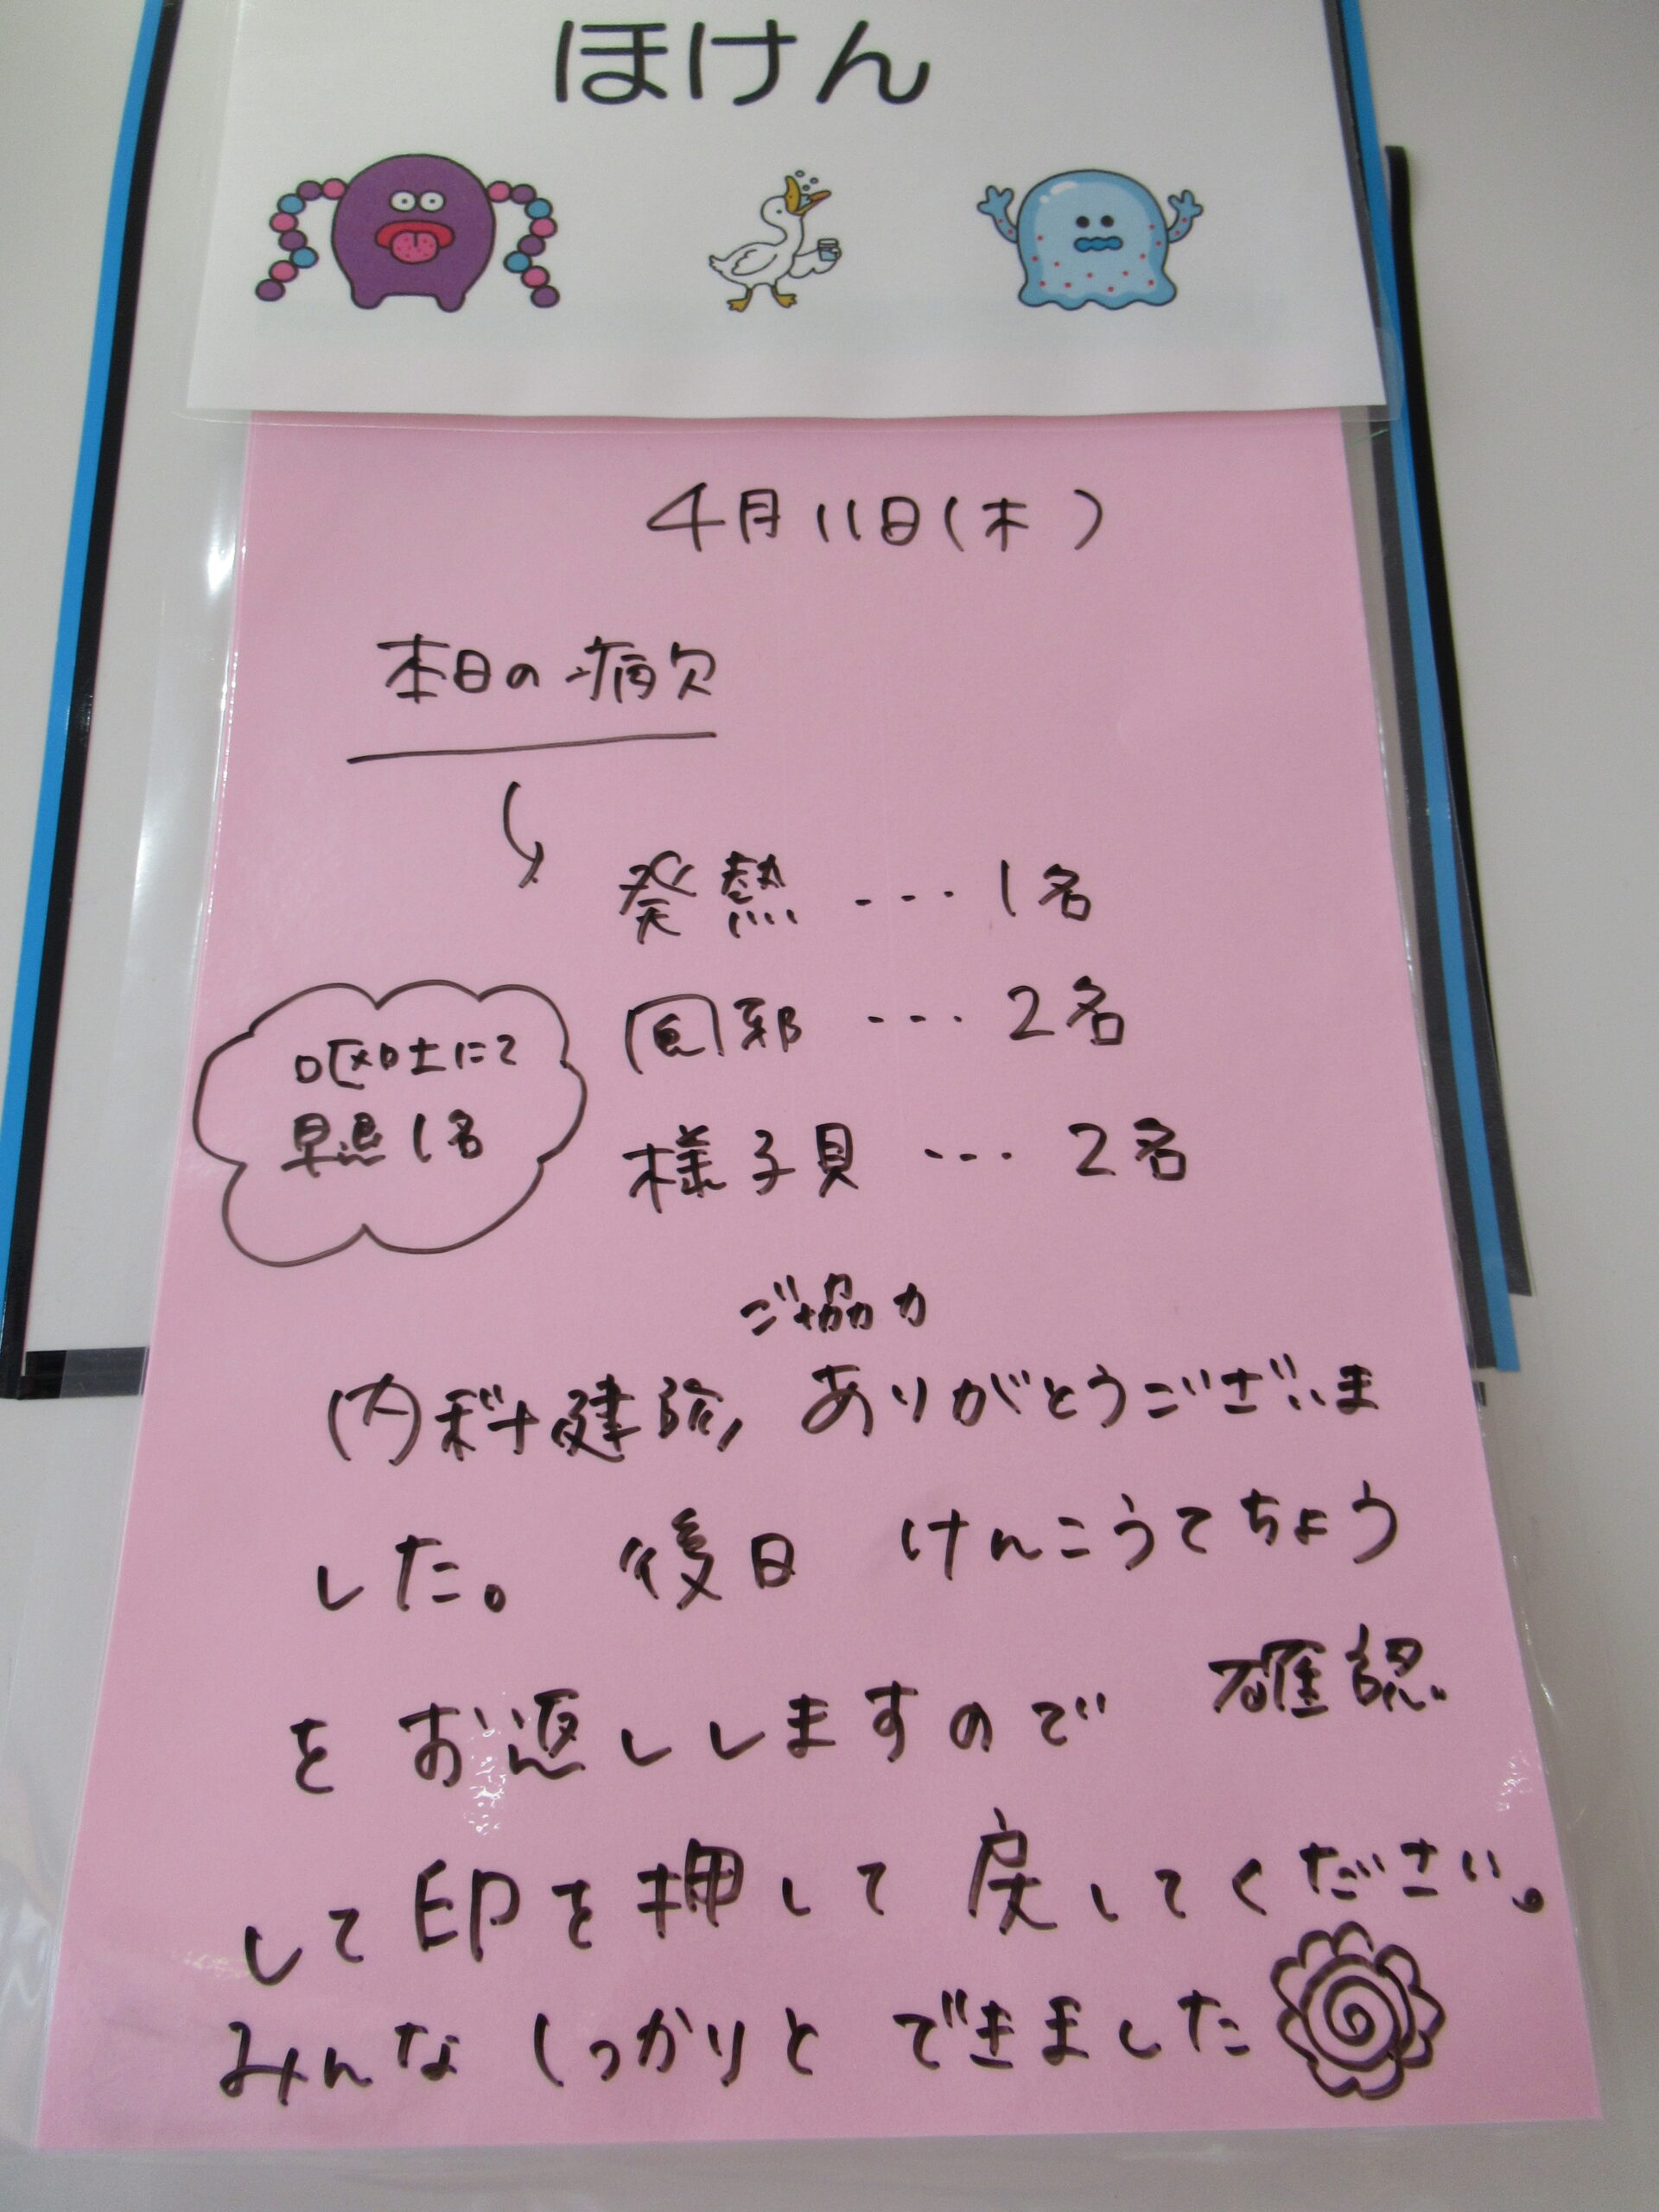 ほけん
4月11日(木)
本日の病欠
発熱 ・・・ 1名
風邪 ・・・ 2名
嘔吐にて
早退1名
様子見 ・・・ 2名
ご協力
内科健診 ありがとうございま
した。 後日 けんこうてちょう
を お返ししますので 確認
して印を押して 戻してください。
みんな しっかりと できました